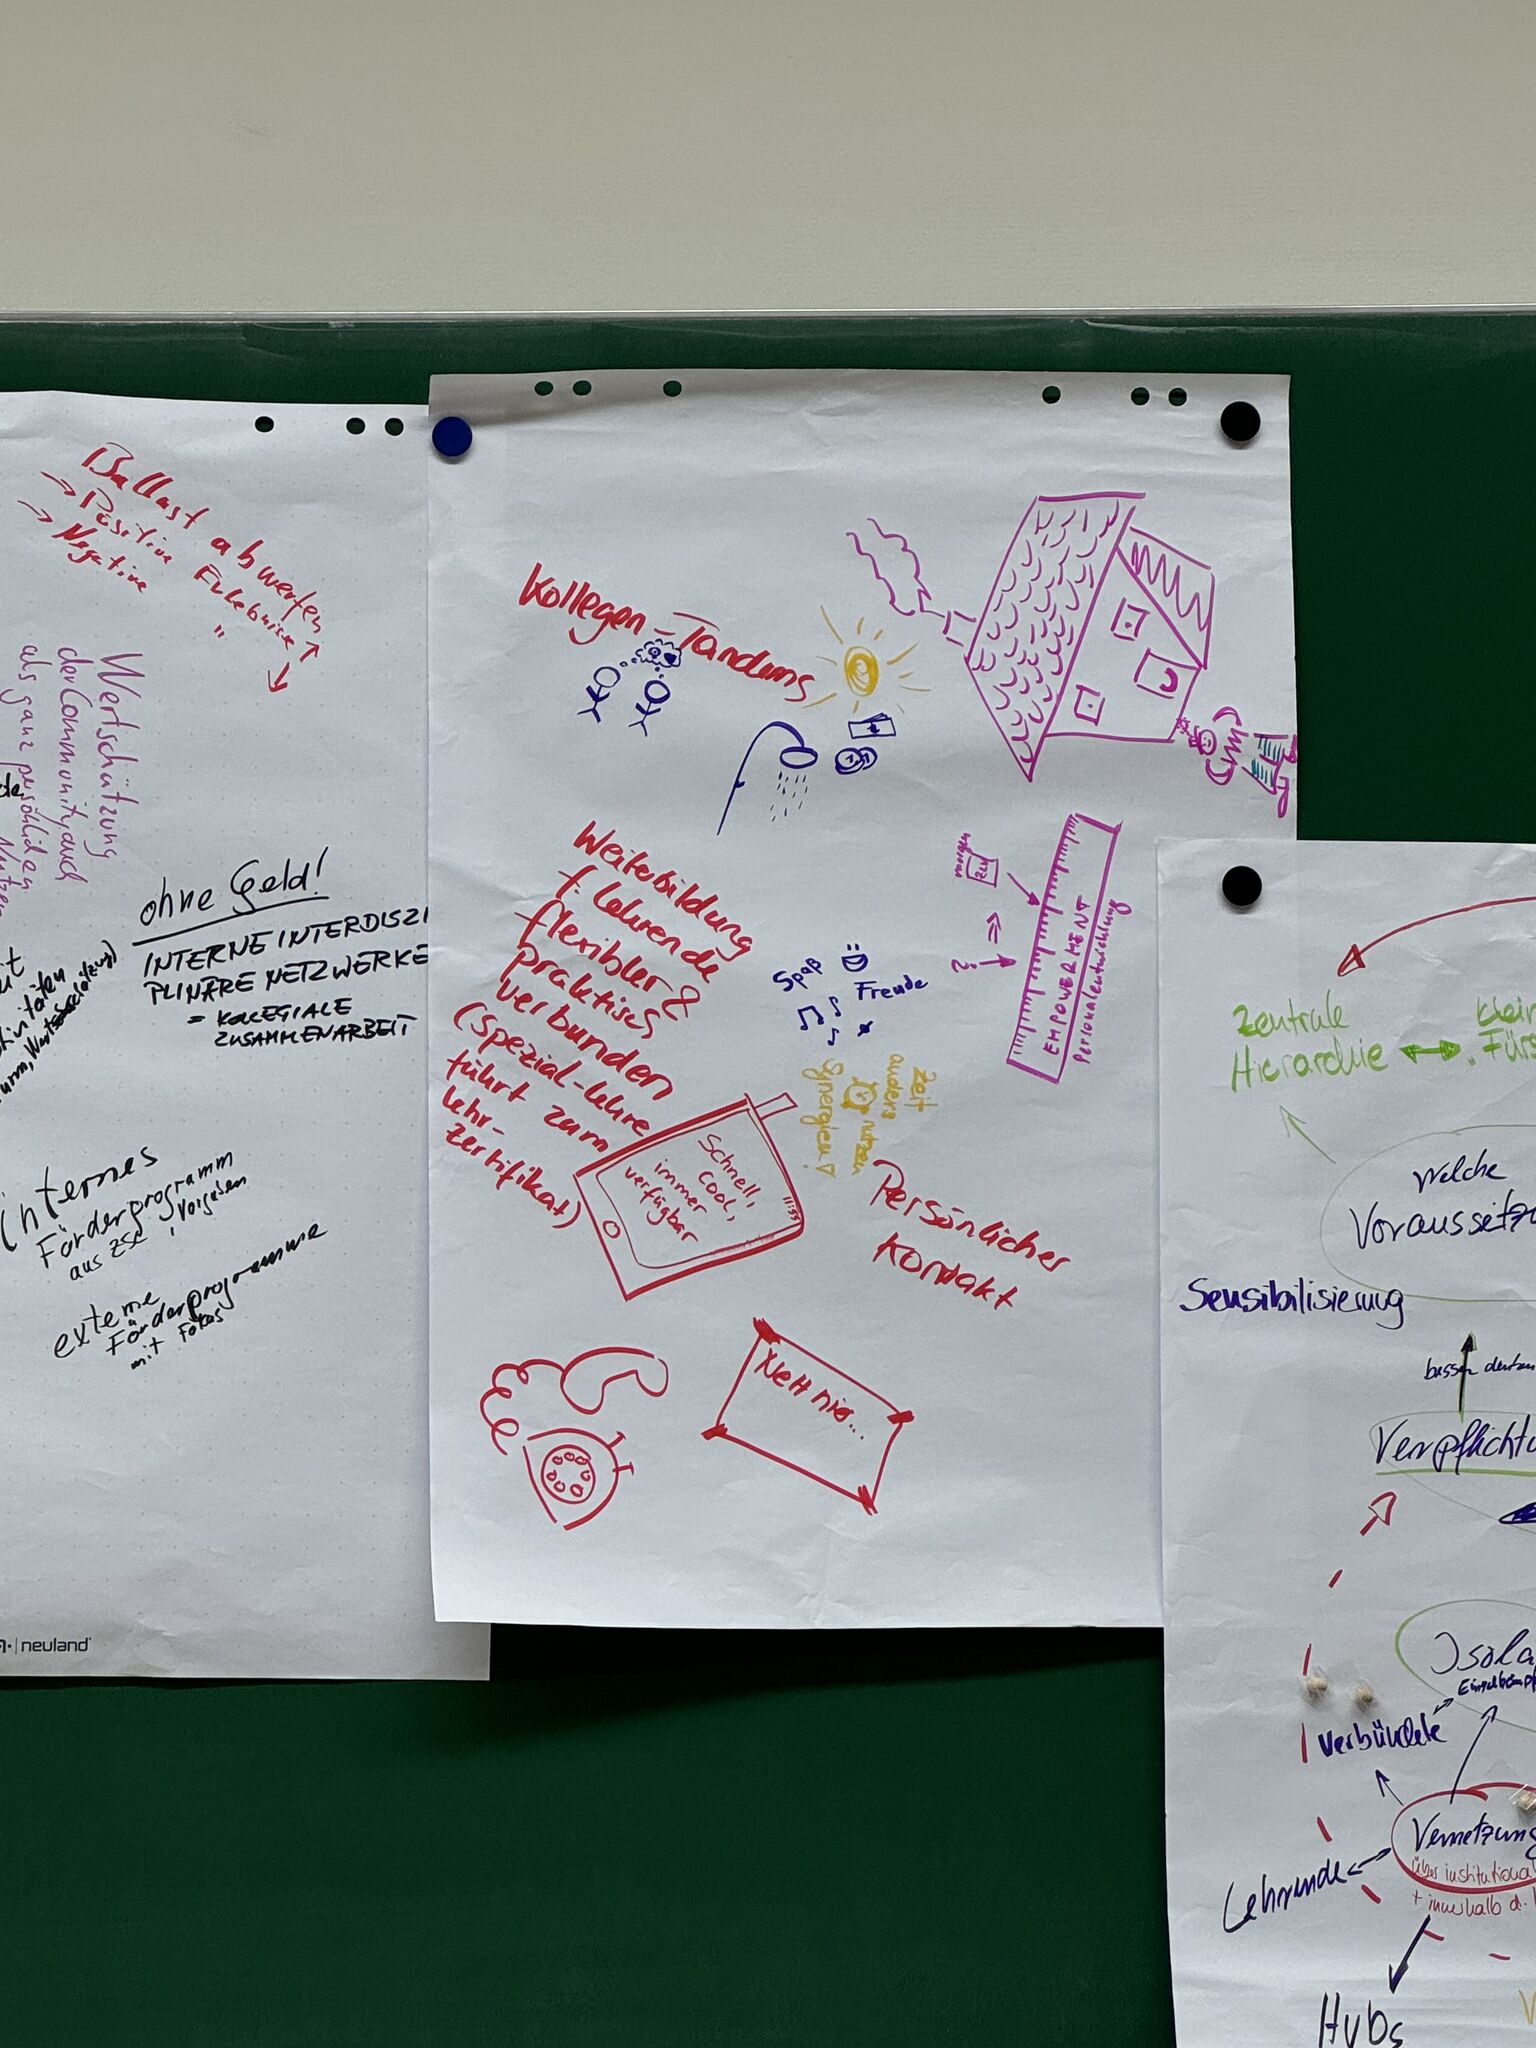 Ballast abwerfen
→ Positive Erlebnisse
→ Negative "
Wertschätzung
der Community auch
als ganz persönlichen
Nutzen
ohne Geld!
INTERNE INTERDISZI
PLINÄRE NETZWERKE
= KOLLEGIALE
ZUSAMMENARBEIT
internes
Förderprogramm
aus ZSL, Vorgaben
externe
Förderprogramme
mit Fokus
neuland
Kollegen-Tandems
Weiterbildung
f. Lehrende
flexibler &
praktisch
verbunden
(Spezial-Lehre
führt zum
Lehr-
zertifikat)
morgen
EMPOWERMENT
Personalentwicklung
Spaß
Freude
Zeit
anders nutzen
Synergien!
Schnell,
cool,
immer
verfügbar
11:55
Persönlicher
Kontakt
Nett hier...
Zentrale
Hierarchie
Welche
Voraussetzu
Sensibilisierung
Verpflichtu
Isola
Verbündete
Vernetzung
über institutional
+ innerhalb d.
Lehrende
Hubs